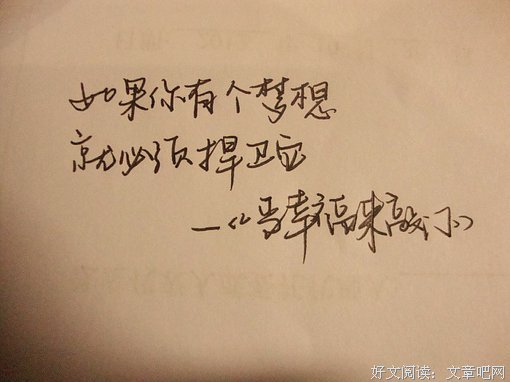 如果你有个梦想
就必须捍卫它
—《当幸福来敲门》
好文阅读：文章吧网